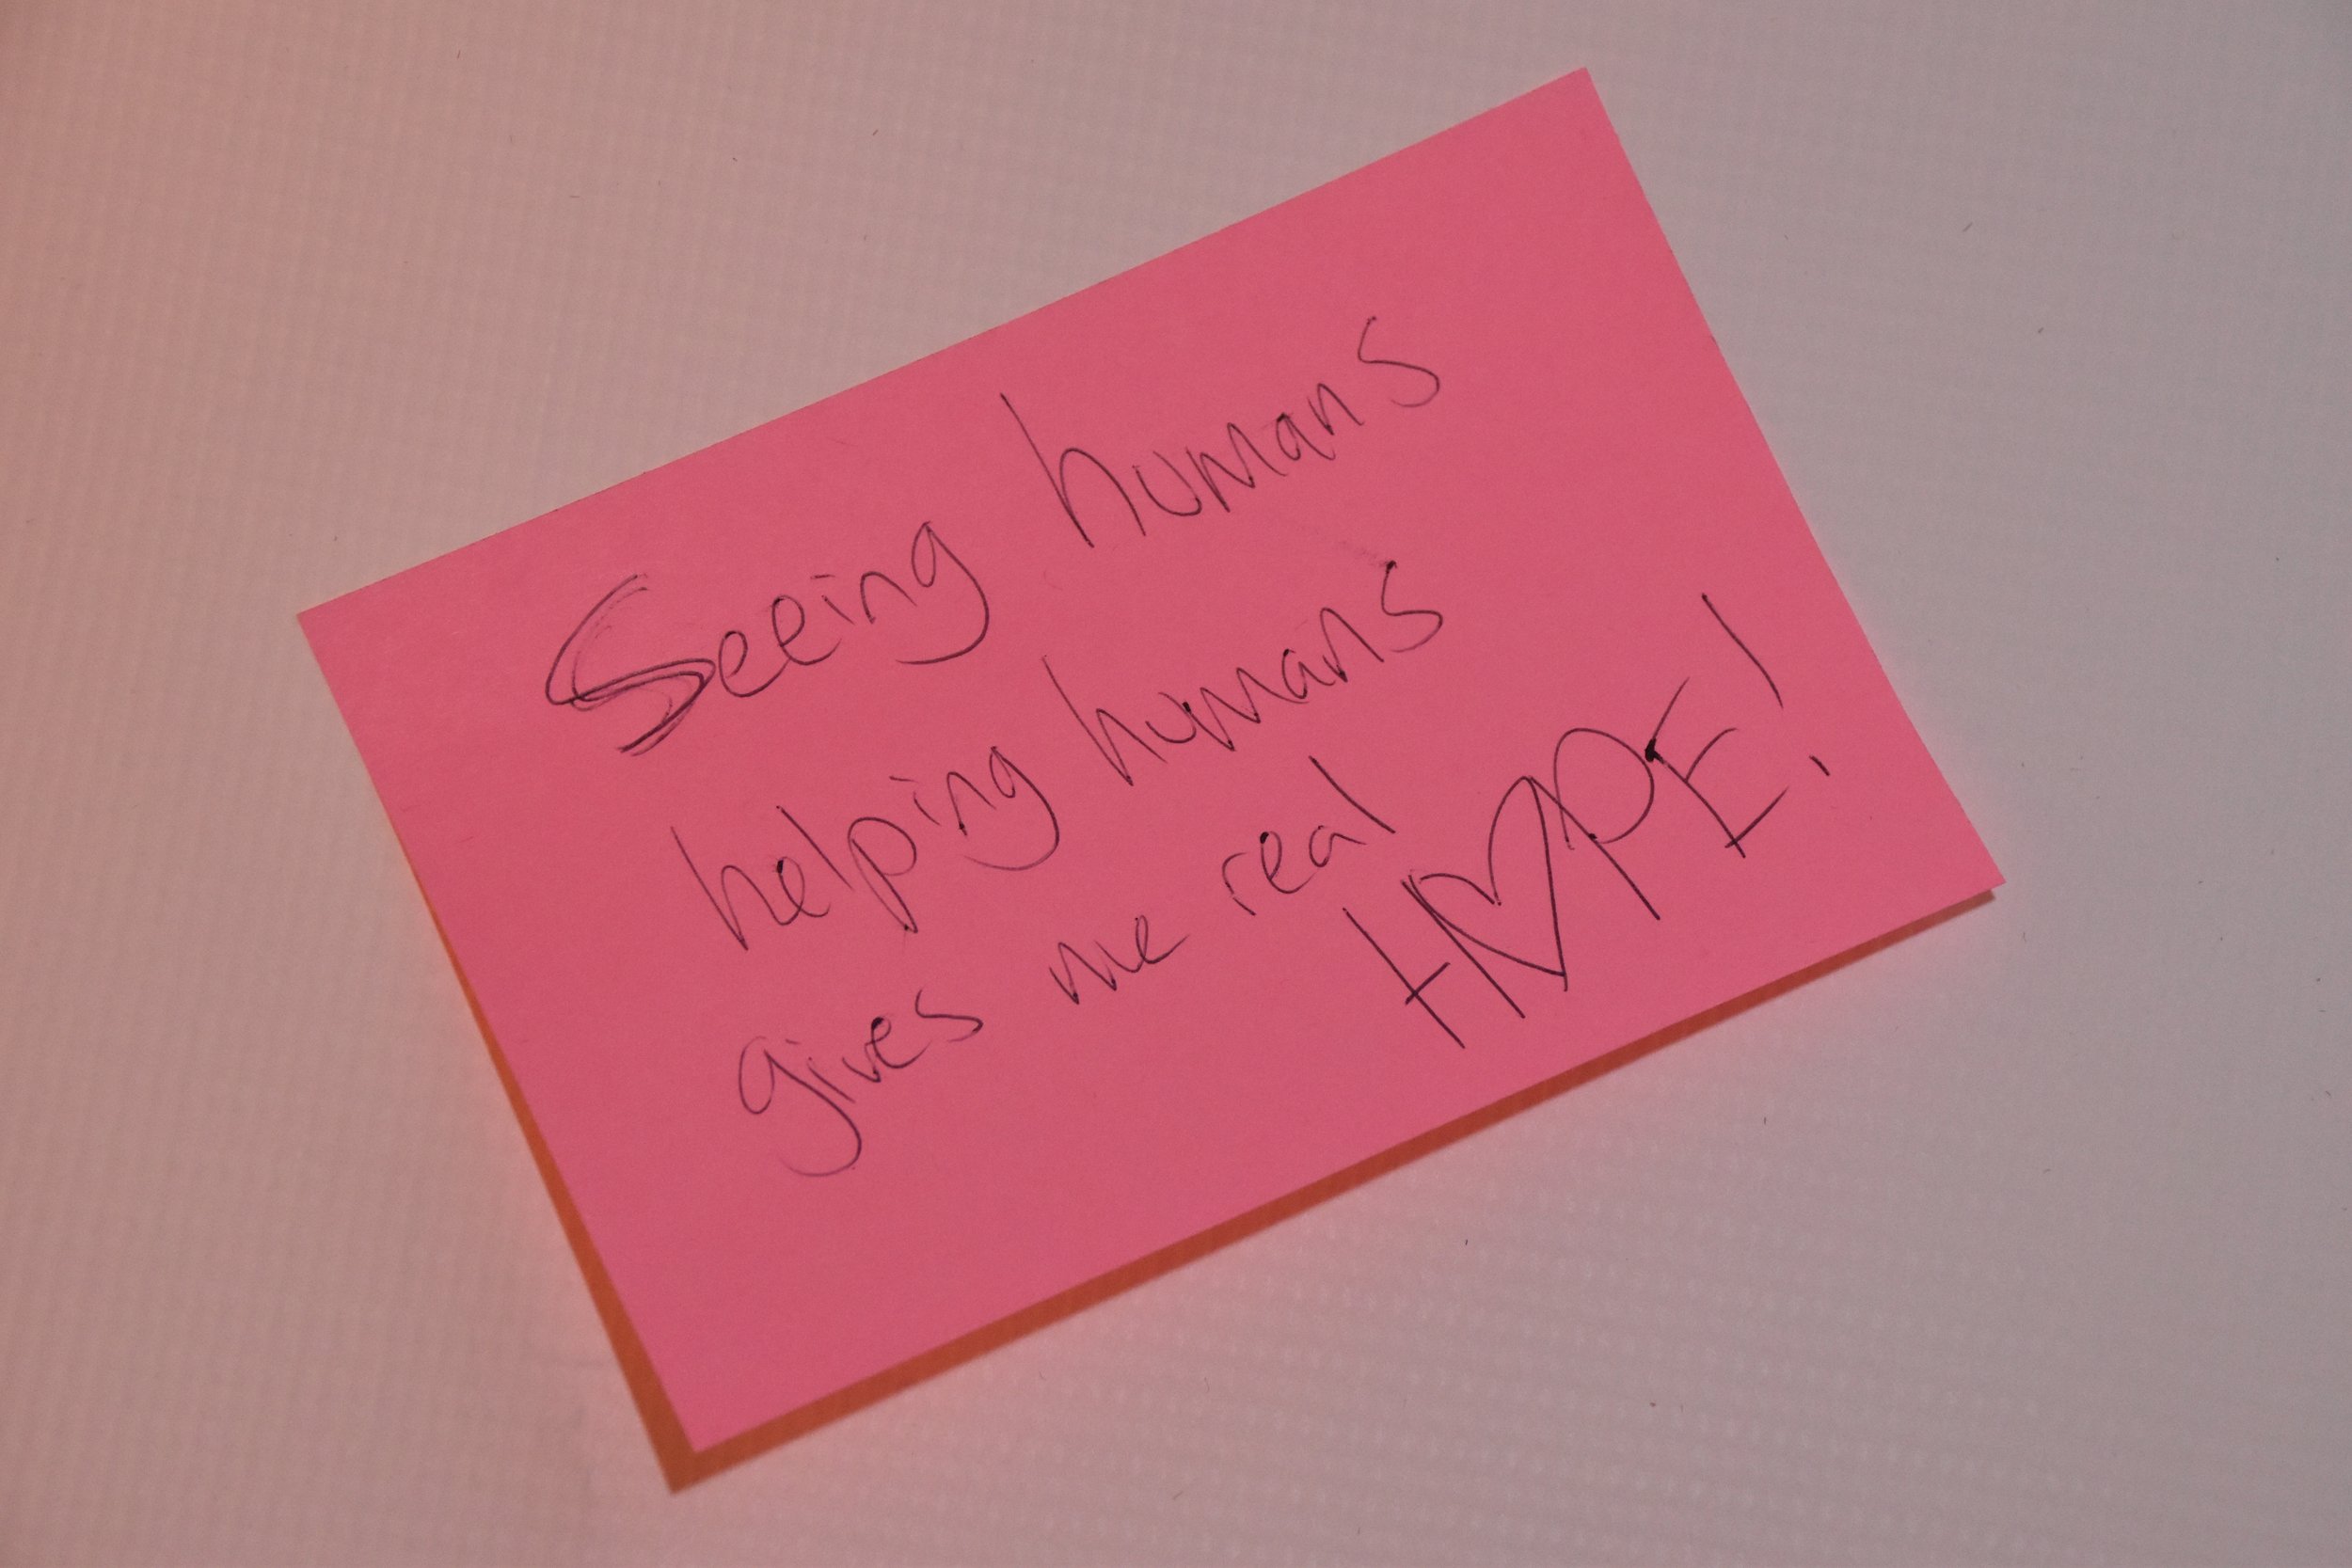 Seeing humans
helping humans
gives me real
H♡PE!